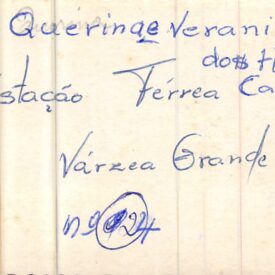 Querinae Verani
dos H
stação Férrea Ca
Várzea Grande
nº 24